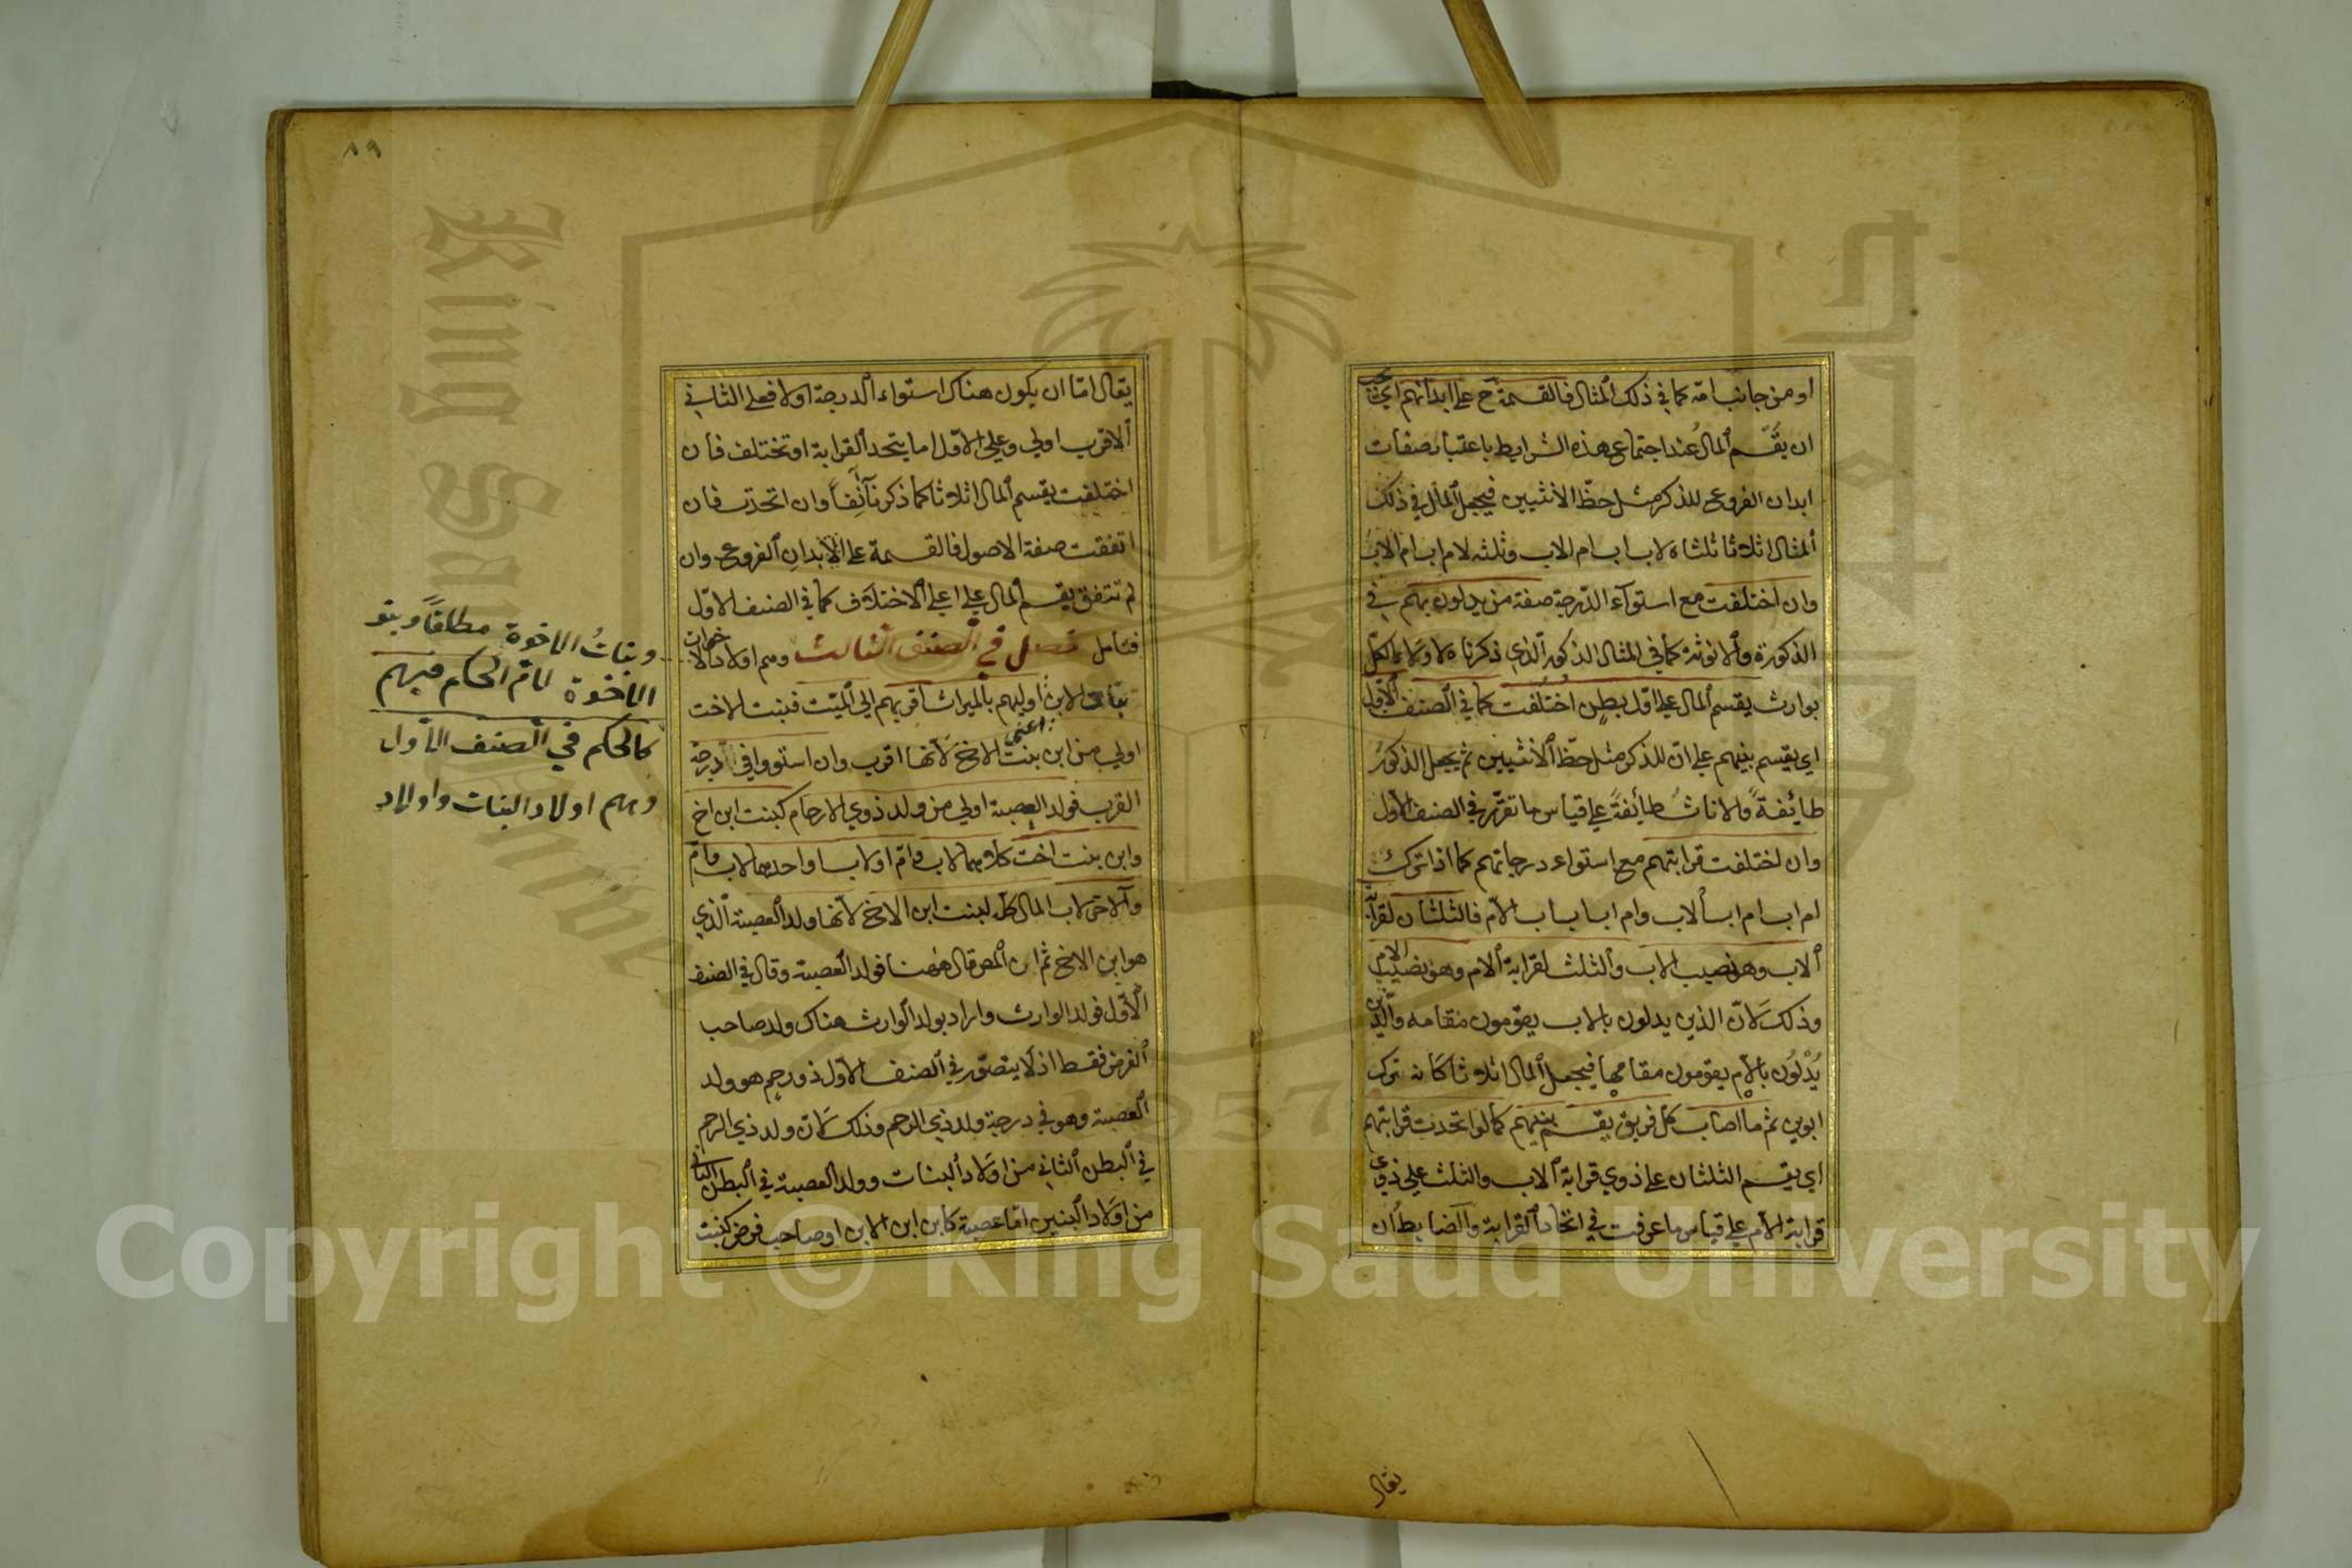 او من جانب امه كما في ذلك المثال فالقسمة ح على ابدانهم اي يجب
ان يقسم المال عند اجتماع هذه الشرايط باعتبار صفات
ابدان الفروع للذكر مثل حظ الانثيين فيجعل المال في ذلك
المثال اثلاثا ثلثاه لاب ابام الاب وثلثه لام ابام الاب
وان اختلفت مع استوآء الدرجة صفة من يدلون بهم في
الذكورة والانوثة كما في المثال الذكور الذي ذكرناه
بوارث يقسم المال على اول بطن اختلفت كما في الصنف الاول
اي يقسم بينهم على ان للذكر مثل حظ الانثيين ثم يجعل الذكور
طائفة والاناث طائفة على قياس ما تقرر في الصنف الاول
وان اختلفت قرابتهم مع استواء درجاتهم كما اذا ترك
ام اب ام اب الاب وام اب اب اب الام فالثلثان لقرابة
الاب وهو نصيب الاب والثلث لقرابة الام وهو نصيب الام
وذلك لان الذين يدلون بالاب يقومون مقامه والذين
يدلون بالام يقومون مقامها فيجعل المال اثلاثا كانه ترك
ابوين ثم ما اصاب كل فريق يقسم بينهم كما لو اتحدت قرابتهم
اي يقسم الثلثان على ذوي قرابة الاب والثلث على ذوي
قرابة الام على قياس ما عرفت في اتحاد القرابة والضابط ان
يقال
٨٩
يقال اما ان يكون هناك استواء الدرجة اولا فعلى الثاني
الاقرب اولى وعلى الاول اما يتحد القرابة او تختلف فان
اختلفت يقسم المال اثلاثا كما ذكرنا آنفا وان اتحدت فان
اتفقت صفة الاصول فالقسمة على الابدان الفروع وان
لم تتفق يقسم المال على اعلى الاختلاف كما في الصنف الاول
فتأمل فصل في الصنف الثالث وهم اولاد الاخوات
اولهم بالميراث اقربهم الى الميت فبنت الاخت
اولى من ابن بنت الاخ لانها اقرب وان استووا في درجة
القرب فولد العصبة اولى من ولد ذوي الارحام كبنت ابن اخ
وابن بنت اخت كلاهما لاب وام او لاب او احدهما لاب وام
والاخر لاب المال كله لبنت ابن الاخ لانها ولد العصبة الذي
هو ابن الاخ ثم ان المص قال ههنا فولد العصبة وقال في الصنف
الاول فولد الوارث واراد بولد الوارث هناك ولد صاحب
الفرض فقط اذ لا يتصور في الصنف الاول ذو رحم هو ولد
العصبة وهو في درجة ولد ذي الرحم وذلك لان ولد ذي الرحم
في البطن الثاني من اولاد البنات وولد العصبة في البطن الثاني
من اولاد البنين اما عصبة كابن ابن الابن او صاحب فرض كبنت
وبنات الاخوة مطلقا وبنو
الاخوة لام الحكم فيهم
كالحكم في الصنف الاول
وهم اولاد البنات واولاد
King Saud
1957
Copyright © King Saud University